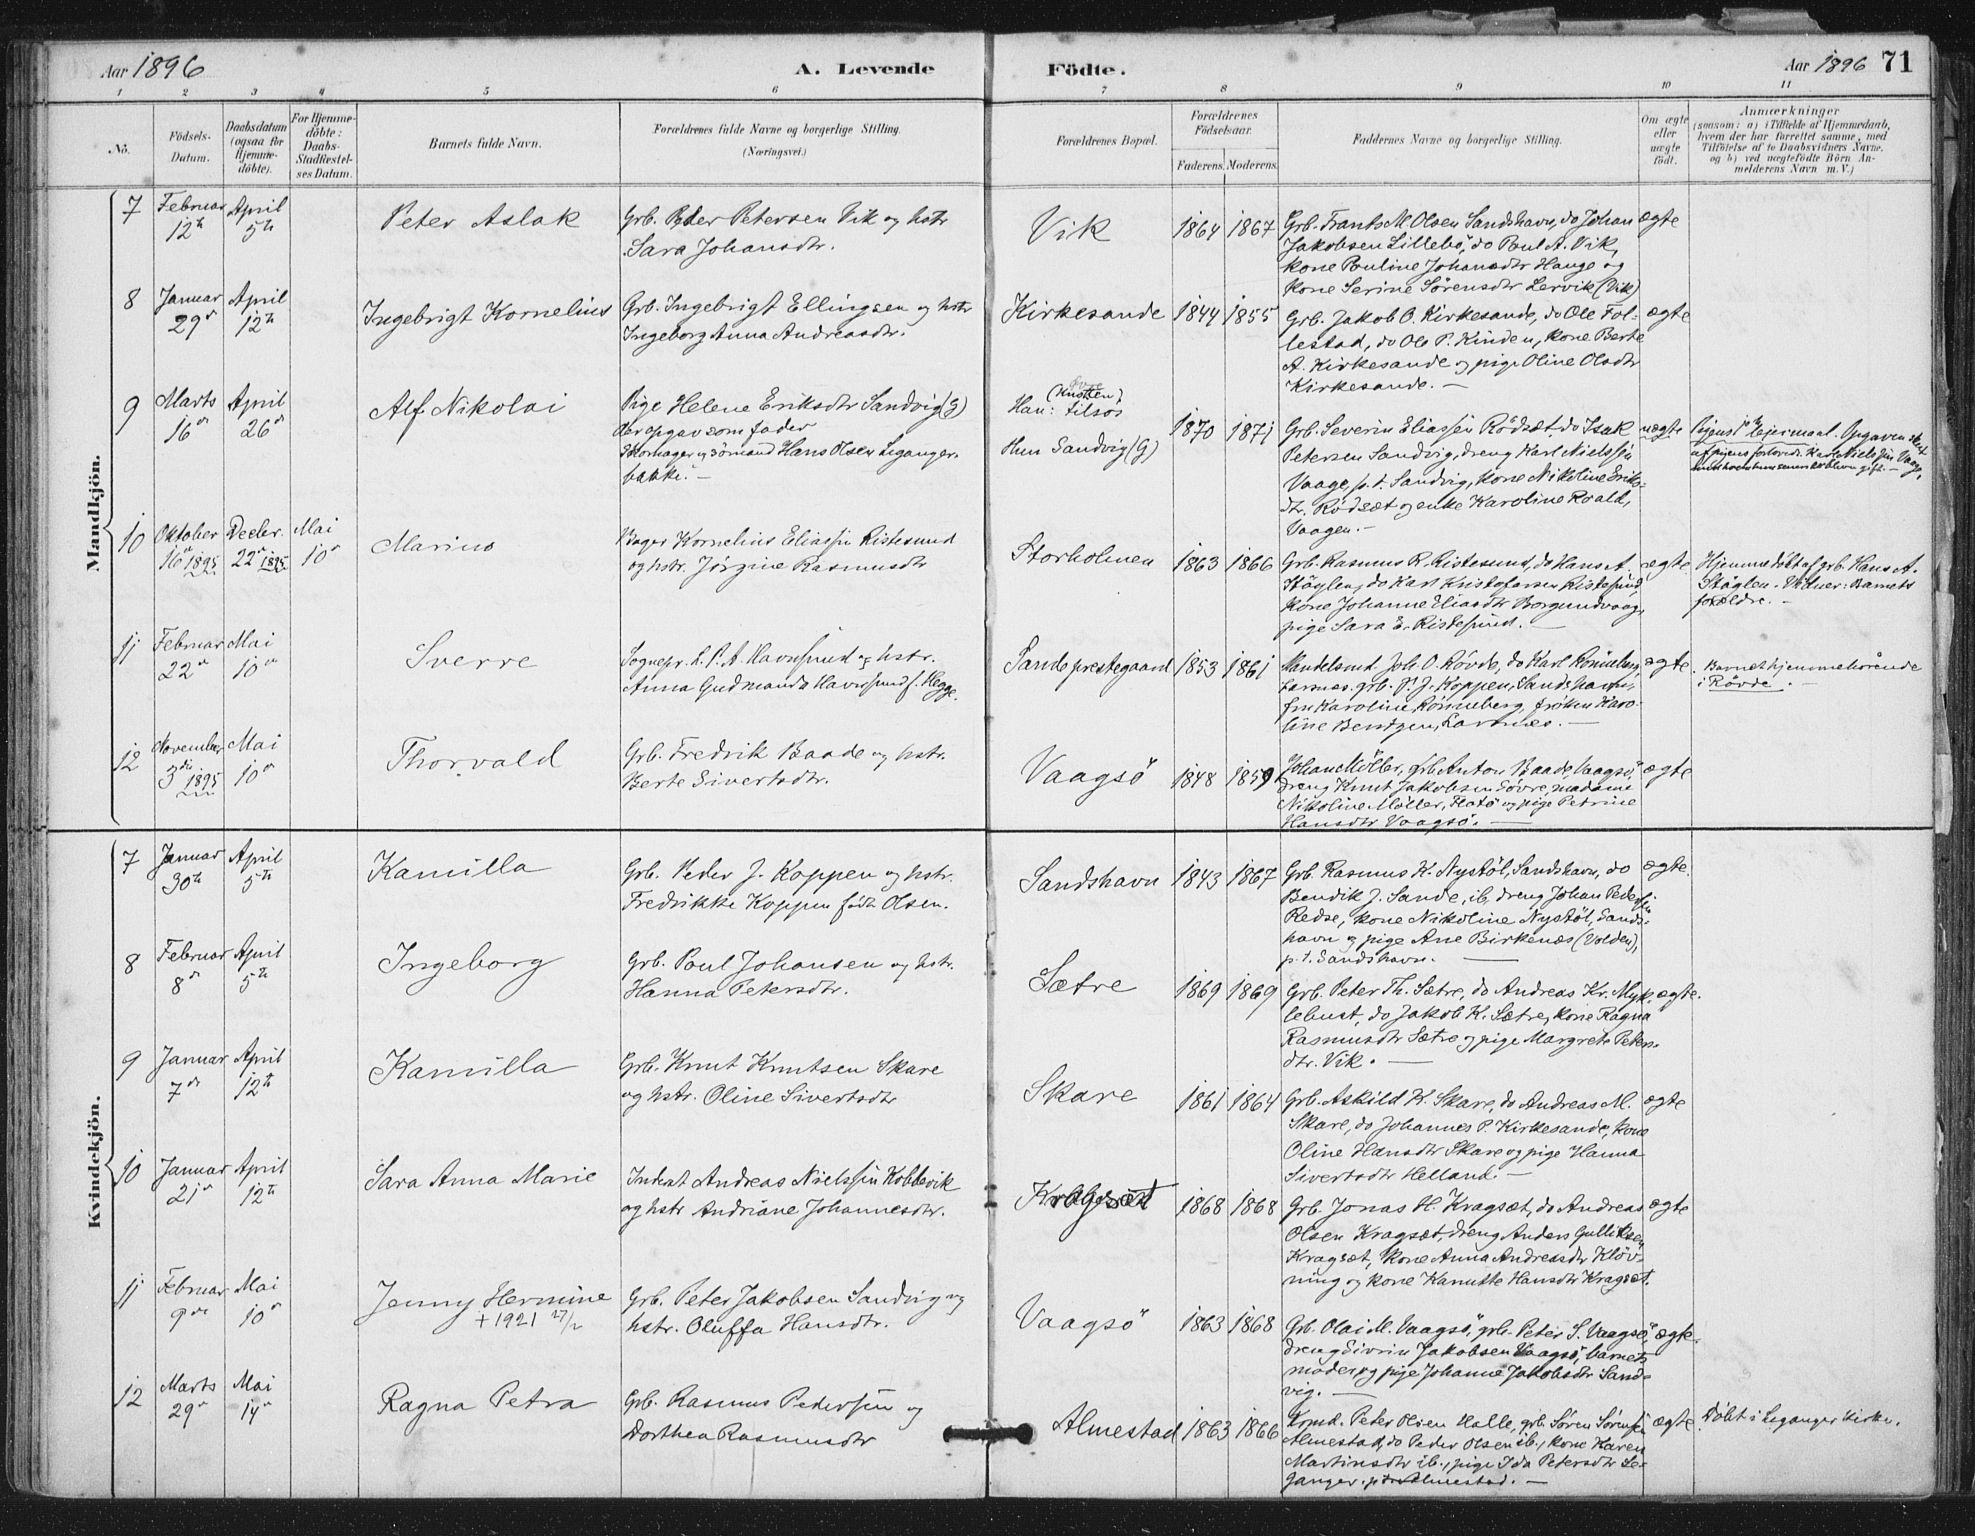 Aar 1896
A. Levende
Födte.
Aar 1896 71
1 2 3 4 5 6 7 8 9 10 11
No.
Födsels-Datum.
Daabsdatum (ogsaa for Hjemme-döbte).
For Hjemme-döbte: Daabs-Stadfæstel-ses Datum.
Barnets fulde Navn.
Forældrenes fulde Navne og borgerlige Stilling.
(Næringsvei.)
Forældrenes Bopæl.
Forældrenes Födselsaar.
Faderens. Moderens.
Faddernes Navne og borgerlige Stilling.
Om ægte eller uægte födt.
Anmærkninger
(saasom: a) i Tilfælde af Hjemmedaab,
hvem der har forrettet samme, med
Tilföielse af to Daabsvidners Navne.
og b) ved uægtefödte Börn An-
melderens Navn m. V.)
Mandkjön.
7 Februar 12te April 5te
Peter Aslak
Grb. Peder Petersen Vik og hstr
Sara Johansdtr.
Vik 1864 1867
Grb. Frants M. Olsen Sandshavn, do Johan
Jakobsen Lillebö, do Poul A. Vik,
kone Pouline Johansdtr Hauge og
kone Serine Sörensdtr Lervik (Vik)
ægte
8 Januar 29de April 12te
Ingebrigt Kornelius
Grb. Ingebrigt Ellingsen og hstr
Ingeborg Anna Andreasdtr.
Kirkesande 1844 1855
Grb. Jakob O. Kirkesande, do Ole Fol-
lestad, do Ole P. Kinden, kone Berte
A. Kirkesande og pige Oline Olsdtr
Kirkesande. —
ægte
9 Marts 16de April 26de
Alf Nikolai
Pige Helene Eriksdtr Sandvig (G)
der opgav som fader
Skomager og sömand Hans Olsen Leganger-
bakke. —
Han: Hun Sandvig (G)
1870 1871
Grb. Severin Eliassen Rödsæt, do Isak
Petersen Sandvig, dreng Karl Nielssen
Vaage, p. t. Sandvig, kone Nikoline Eriks-
dtr. Rödsæt og enke Karoline Roald,
Vaagen. —
uægte
Pigens 1ste leiermaal.
10 Oktober 16de 1895 Decbr. 22de 1895 Mai 10de
Marino
Kornelius Eliassen Ristesund
og hstr. Jörgine Rasmusdtr
Storholmen 1863 1866
Grb. Rasmus R. Ristesund, do Hans A.
Stöylen, do Karl Kristofersen Ristesund,
kone Johanne Eliasdtr Borgundvaag,
pige Sara E. Ristesund. —
ægte
Hjemmedöbt af grb. Hans A.
Stöylen. Vidner: Barnets
forældre. —
11 Februar 22de Mai 10de
Sverre
Sognepr. L. P. A. Havnsund og hstr.
Anna Gudmanda Havnsund f. Hegge.
Sande prestegaard 1853 1861
Handelsmd. Joh. O. Rövde, do Karl Rönneberg,
Larsnes. grb. P. J. Koppen, Sandshavn,
fru Karoline Rönneberg, fröken Karo-
line Bendzen, Larsnæs. —
ægte
Barnet hjemmehörende
i Rövde. —
12 November 3die 1895 Mai 10de
Thorvald
Grb. Fredrik Baade og hstr.
Berte Sivertsdtr.
Vaagsö 1848 1859
Johan Möller, grb Anton Baade Vaagsö,
dreng Knut Jakobsen Sövre, madame
Nikoline Möller, Flatö og pige Petrine
Hansdtr Vaagsö. —
ægte
Kvindekjön.
7 Januar 30te April 5te
Kamilla
Grb. Peder J. Koppen og hstr.
Fredrikke Koppen födt Olsen.
Sandshavn 1843 1867
Grb. Rasmus K. Nystöl, Sandshavn, do
Bendik J. Sande, ib, dreng Johan Pedersen
Redse, kone Nikoline Nystöl, Sands-
havn og pige Ane Birkenæs (Volden),
p. t. Sandshavn. —
ægte.
8 Februar 8de April 5te
Ingeborg
Grb. Poul Johansen og hstr.
Hanna Petersdtr.
Sætre 1869 1869
Grb. Peter Th. Sætre, do Andreas Kr. Myk-
lebust, do Jakob K. Sætre, kone Ragna
Rasmusdtr Sætre og pige Margrete Peters-
dtr. Vik. —
ægte.
9 Januar 7de April 12te
Kamilla
Grb. Knut Knutsen Skare
og hstr. Oline Sivertsdtr
Skare 1861 1864
Grb. Askild K. Skare, do Andreas M.
Skare, do Johannes P. Kirkesande, kone
Oline Hansdtr Skare og pige Hanna
Sivertsdtr Helland. —
ægte
10 Januar 21de April 12te
Sara Anna Marie
Inderst Andreas Nielssen Kobbevik
og hstr Andriane Johannesdtr.
Kragesæt 1868 1868
Grb. Jonas H. Kragsæt, do Andreas
Olsen Kragsæt, dreng Anders Gulliksen
Kragsæt, kone Anna Andreasdtr Klöv-
ning og kone Kanutte Hansdtr Kragsæt.
ægte
11 Februar 9de Mai 10de
Jenny Hermine
+ 1921 27/2
Grb. Peter Jakobsen Sandvig og
hstr. Oluffa Hansdtr.
Vaagsö 1863 1868
Grb. Olai M. Vaagsö, grb. Peter S. Vaagsö,
dreng Sivrin Jakobsen Vaagsö, barnets
moder og pige Johanne Jakobsdtr Sand-
vig. —
ægte.
12 Marts 29de Mai 14de
Ragna Petra
Grb. Rasmus Pedersen og
Dorthea Rasmusdtr
Almestad 1863 1866
Peter Olsen Halle, grb. Sören Sörensen
Almestad, do Peder Olsen ib., kone Karen
Martinsdtr ib., pige Ida Petersdtr Le-
ganger. p. t. Almestad. —
ægte
Döbt i Leganger kirke.